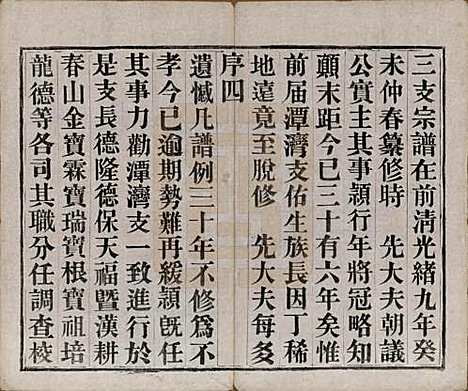 三支宗譜在前清光緒九年癸
未仲春纂修時　先大夫朝議
公實主其事潁行年將冠略知
顛末距今已三十有六年矣惟
前屆潭灣支佑生族長因丁稀
地遠竟至脫修　先大夫每多
序四
遺憾凡譜例三十年不修爲不
孝今已逾期勢難再緩潁旣任
其事力勸潭灣支一致進行於
是支長德隆德保天福曁漢耕
春山金寶霖寶瑞寶根寶祖培
龍德等各司其職分任調查校